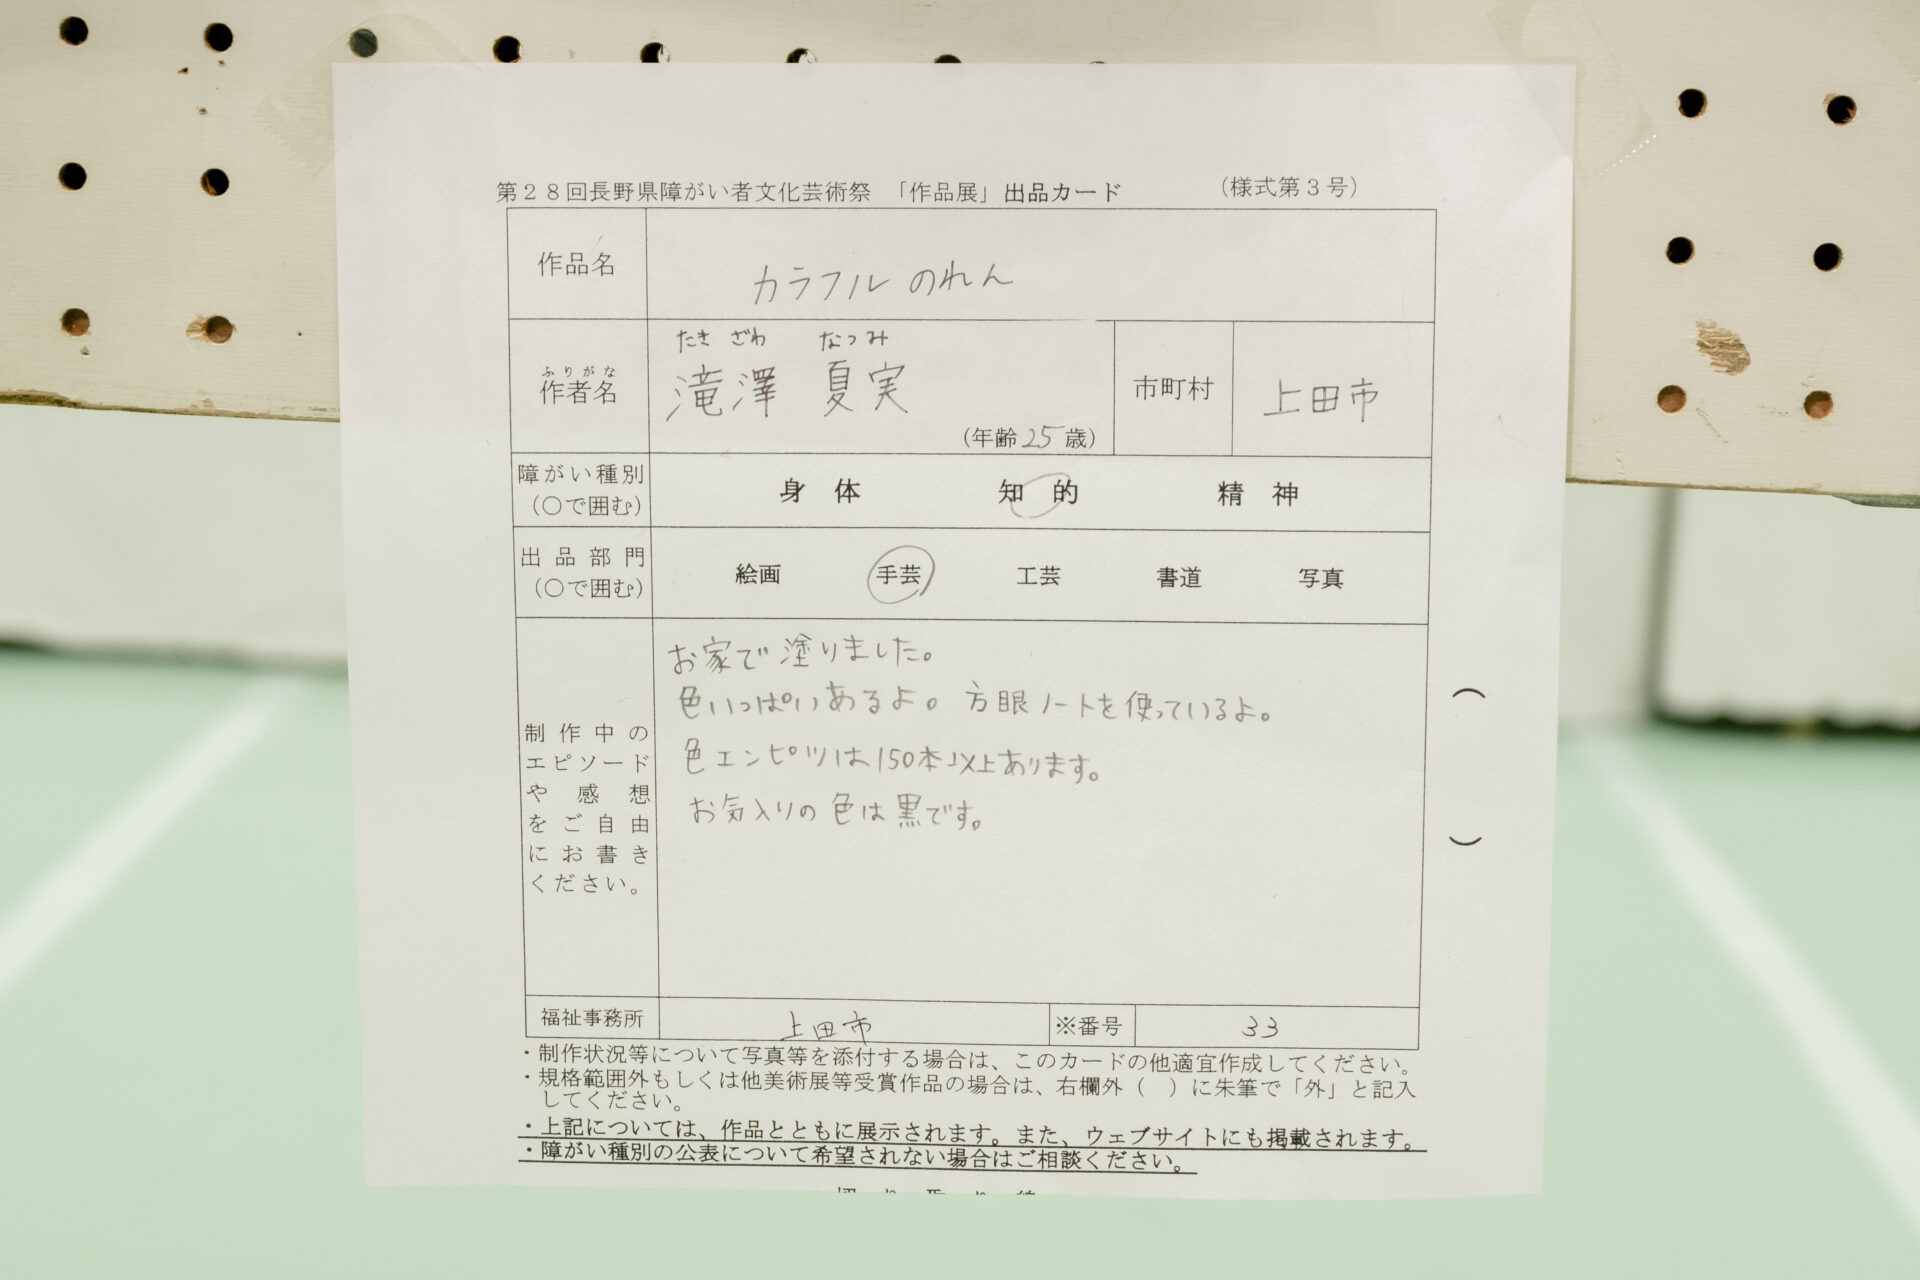 第２８回長野県障がい者文化芸術祭 「作品展」出品カード （様式第３号）
作品名 カラフルのれん
ふりがな たきざわ なつみ
作者名 滝澤 夏実 （年齢25歳） 市町村 上田市
障がい種別 （○で囲む） 身体 知的 精神
出品部門 （○で囲む） 絵画 手芸 工芸 書道 写真
制作中の
エピソード
や感想
をご自由
にお書き
ください。
お家で塗りました。
色いっぱいあるよ。方眼ノートを使っているよ。
色エンピツは150本以上あります。
お気入りの色は黒です。
（ ）
福祉事務所 上田市 ※番号 33
・制作状況等について写真等を添付する場合は、このカードの他適宜作成してください。
・規格範囲外もしくは他美術展等受賞作品の場合は、右欄外（ ）に朱筆で「外」と記入
してください。
・上記については、作品とともに展示されます。また、ウェブサイトにも掲載されます。
・障がい種別の公表について希望されない場合はご相談ください。